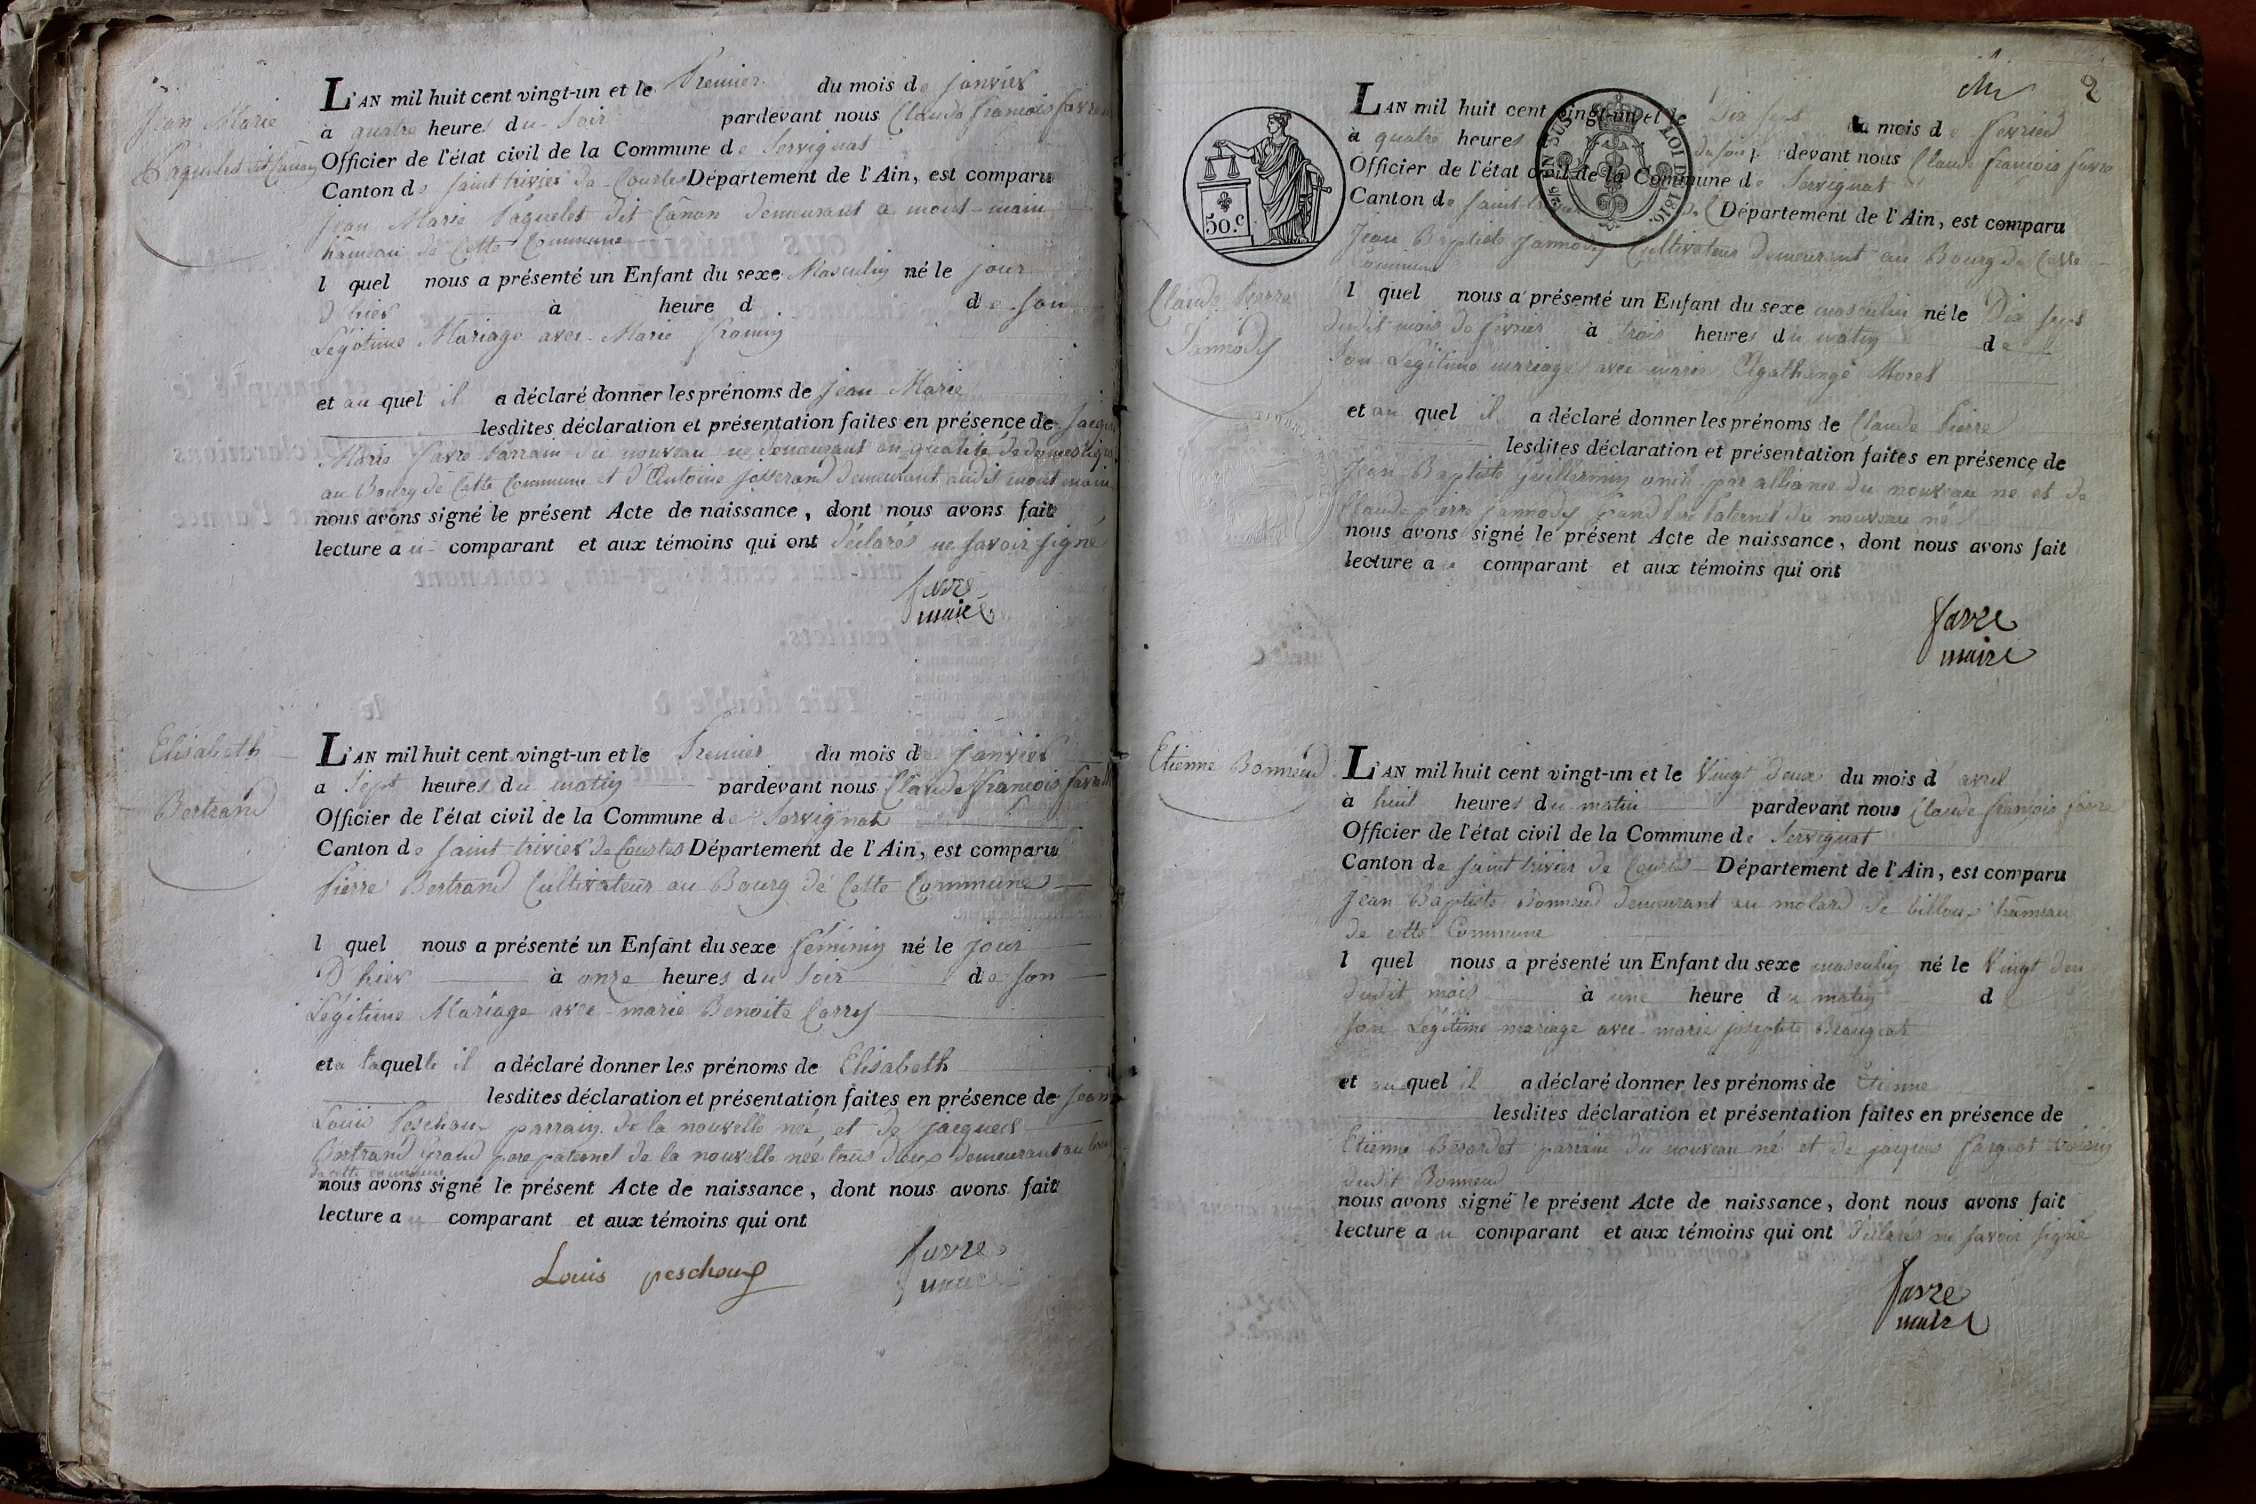 Jean Marie
Paquelet dit Canon
L'AN mil huit cent vingt-un et le Premier du mois de janvier
à quatre heures du Soir pardevant nous Claude françois favre
Officier de l'état civil de la Commune de Servignat
Canton de Saint trivier de Courtes Département de l'Ain, est comparu
Jean Marie Paquelet dit Canon demeurant a mont-main
hameau de Cette Commune
l quel nous a présenté un Enfant du sexe Masculin né le jour
D'hier à heure d de son
Légitime Mariage avec Marie
et au quel il a déclaré donner les prénoms de Jean Marie
lesdites déclaration et présentation faites en présence de
Marie favre Parrain du nouveau né demeurant en qualité de domestique
au Bourg de Cette Commune et d'Antoine Josserand demeurant audit mont main
nous avons signé le présent Acte de naissance, dont nous avons fait
lecture au comparant et aux témoins qui ont déclarés ne savoir signé
favre
maire
Elisabeth
Bertrand
L'AN mil huit cent vingt-un et le Premier du mois de janvier
a Sept heures du matin pardevant nous Claude françois favre
Officier de l'état civil de la Commune de Servignat
Canton de Saint trivier de Courtes Département de l'Ain, est comparu
Pierre Bertrand Cultivateur au Bourg de Cette Commune
l quel nous a présenté un Enfant du sexe féminin né le jour
D'hier à onze heures du Soir de son
Légitime Mariage avec marie Benoite Carry
et a laquelle il a déclaré donner les prénoms de Elisabeth
lesdites déclaration et présentation faites en présence de Jean
Louis Peschoux parrain de la nouvelle née et de jacques
Bertrand Grand pere paternel de la nouvelle née tous deux demeurant au bourg
de cette commune
nous avons signé le présent Acte de naissance, dont nous avons fait
lecture au comparant et aux témoins qui ont
Louis peschoux
favre
maire
2
50.c
EN SUS LOI DE 1816.
Claude Pierre
Jannody
L'AN mil huit cent vingt-un et le dix sept du mois de fevrier
à quatre heures du soir pardevant nous Claude françois favre
Officier de l'état civil de la Commune de Servignat
Canton de Saint Département de l'Ain, est comparu
Jean Baptiste Jannody Cultivateur demeurant au Bourg de Cette
commune
l quel nous a présenté un Enfant du sexe masculin né le Dix sept
dudit mois de fevrier à trois heures du matin de
son Légitime mariage avec marie Agathange Morel
et au quel il a déclaré donner les prénoms de Claude Pierre
lesdites déclaration et présentation faites en présence de
Jean Baptiste Guillermin par alliance du nouveau né et de
Claude pierre Jannody grand Pere Paternel du nouveau né
nous avons signé le présent Acte de naissance, dont nous avons fait
lecture a comparant et aux témoins qui ont
favre
maire
Etienne Bonneud
L'AN mil huit cent vingt-un et le Vingt deux du mois d'avril
à huit heures du matin pardevant nous Claude françois favre
Officier de l'état civil de la Commune de Servignat
Canton de Saint trivier de Courtes Département de l'Ain, est comparu
Jean Baptiste Bonneud demeurant au molard de hameau
de cette Commune
l quel nous a présenté un Enfant du sexe masculin né le Vingt deux
dudit mois à une heure du matin d
son Légitime mariage avec marie josephte
et au quel il a déclaré donner les prénoms de Etienne
lesdites déclaration et présentation faites en présence de
Etienne Berardet parrain du nouveau né et de jacques voisin
dudit Bonneud
nous avons signé le présent Acte de naissance, dont nous avons fait
lecture au comparant et aux témoins qui ont déclarés ne savoir signé
favre
maire